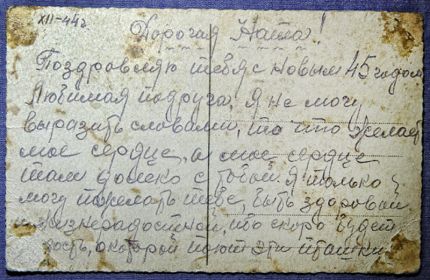 XII-44г
Дорогая Ната!
Поздровляю тебя с новым 45 годом
Любимая подруга, я не могу
выразить словами, то что желает
мое сердце, а мое сердце
там далеко с тобой я только
могу пожелать тебе, быть здоровой
и жизнерадостной, что скоро будет
ость, о которой поют эти пташки